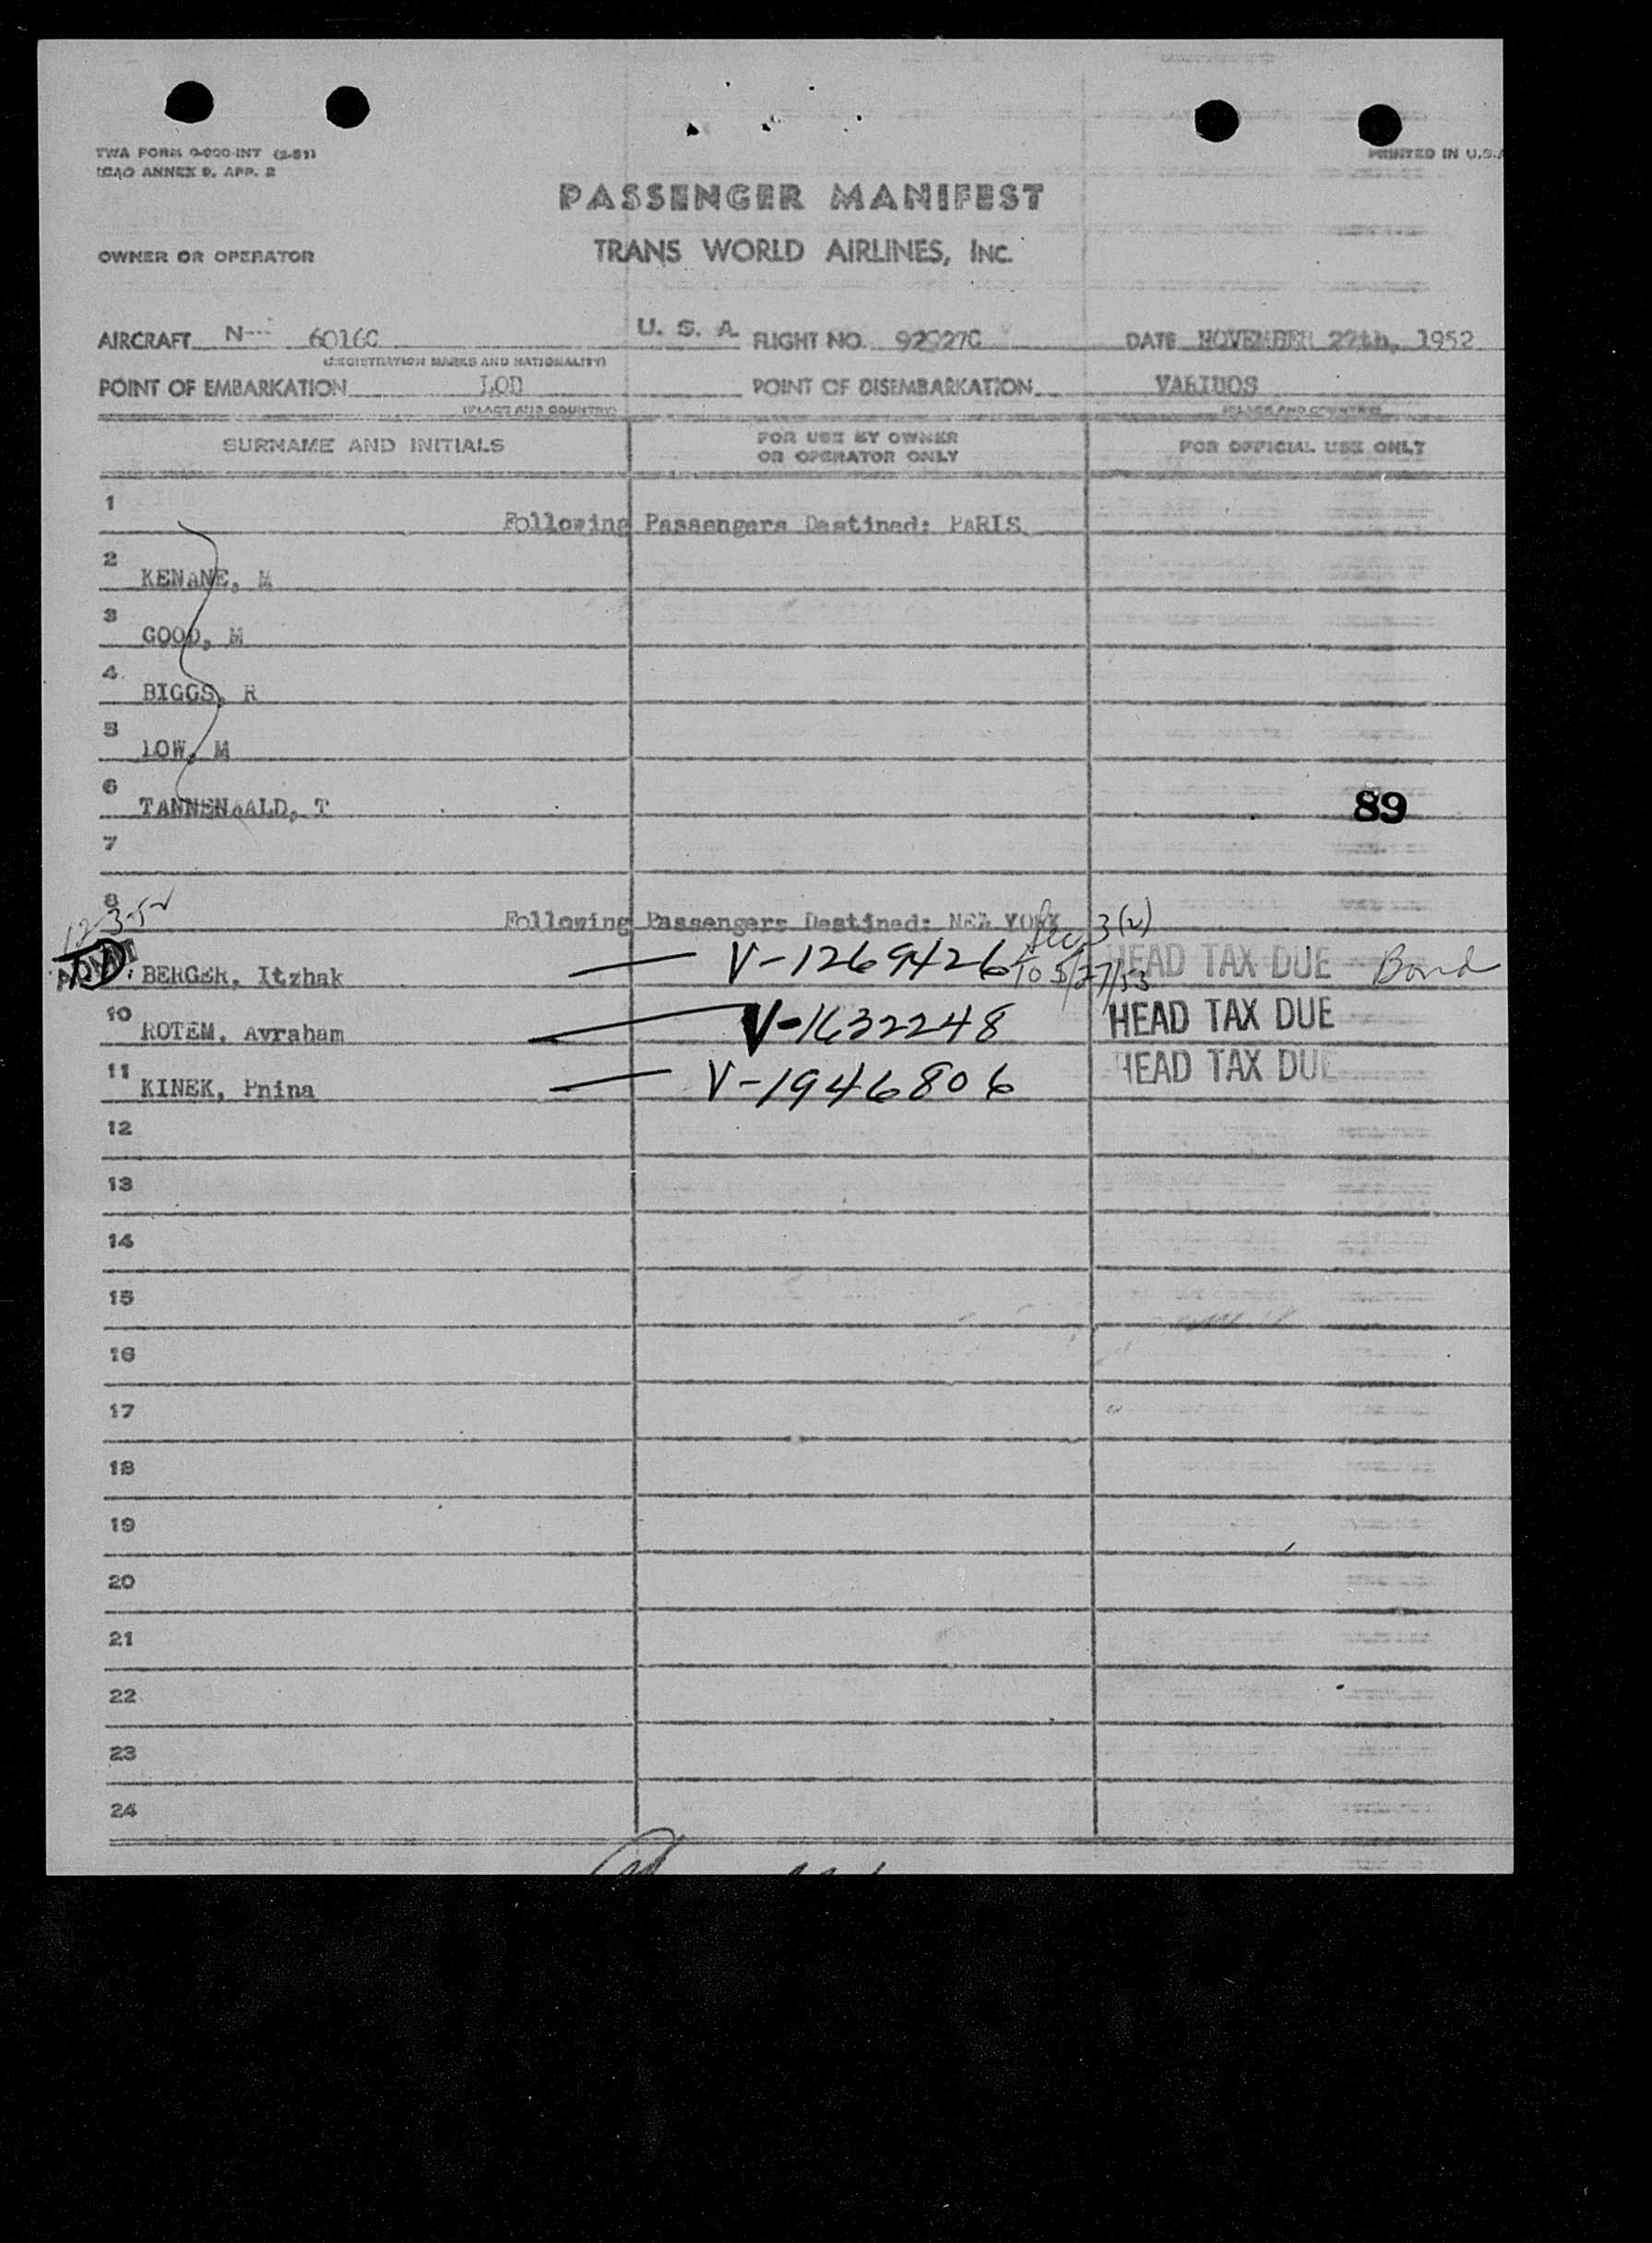 TWA FORM 0-000-INT (2-51)
ICAO ANNEX 9, APP. 2
PRINTED IN U.S.A
PASSENGER MANIFEST
OWNER OR OPERATOR TRANS WORLD AIRLINES, INC.
AIRCRAFT N--- 6016C U. S. A. FLIGHT NO. 92C27C DATE NOVEMBER 27th, 1952
(REGISTRATION MARKS AND NATIONALITY)
POINT OF EMBARKATION LOD POINT OF DISEMBARKATION VARIUOS
(PLACE AND COUNTRY) (PLACE AND COUNTRY)
SURNAME AND INITIALS FOR USE BY OWNER OR OPERATOR ONLY FOR OFFICIAL USE ONLY
1 Following Passengers Destined: PARIS
2 KENANE, M
3 GOOD, M
4 BIGGS, R
5 LOW, M
6 TANNENAALD, T 89
7
8 Following Passengers Destined: NEW YORK
12-3-52 Sec 3(2)
ADMIT BERGER, Itzhak — V-1269426 TO 5/27/53 HEAD TAX DUE Bond
10 ROTEM, Avraham — V-1632248 HEAD TAX DUE
11 KINEK, Pnina — V-1946806 HEAD TAX DUE
12
13
14
15
16
17
18
19
20
21
22
23
24